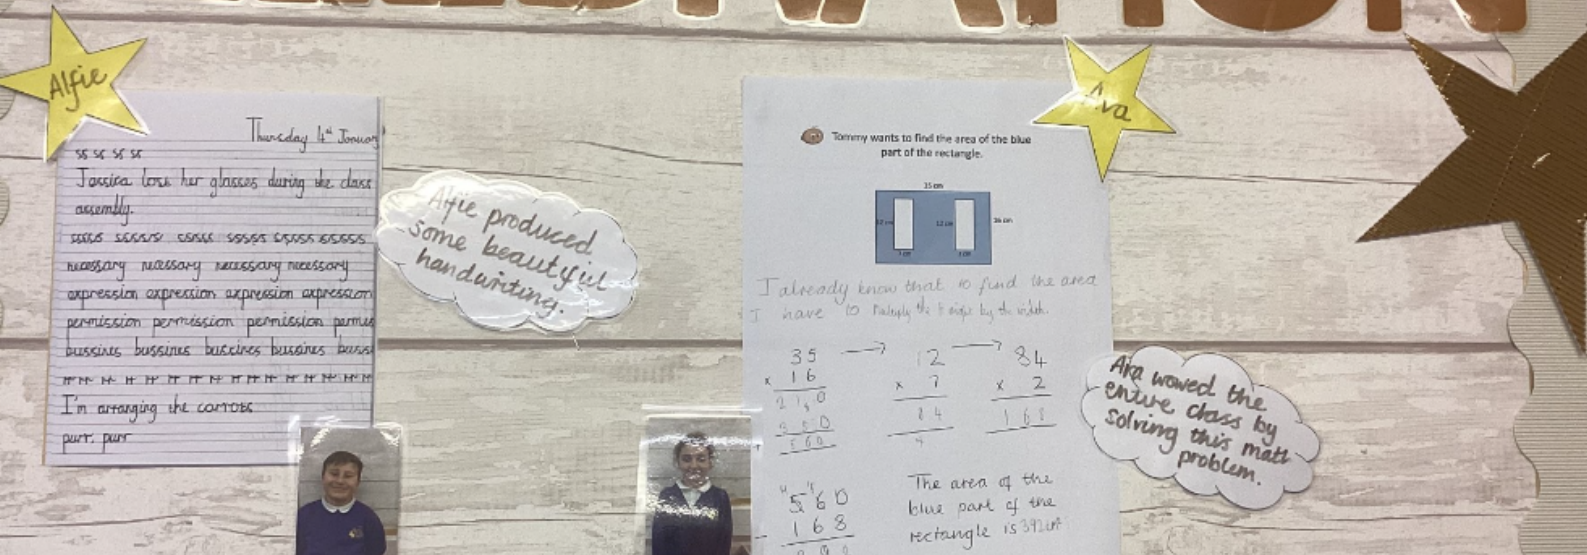 Alfie
Thursday 4th Januar
ss ss ss ss
Jessica lost her glasses during the class
assembly.
sssss sssss sssss sssss sssss sssss
necessary necessary necessary necessary
expression expression expression expression
permission permission permission permis
bussines bussines bussines bussines buss
rr rr rr rr rr rr rr rr rr rr rr rr rr rr
I'm arranging the carrots
purr. purr
Alfie produced
some beautiful
handwriting.
Ava
Tommy wants to find the area of the blue
part of the rectangle.
35 cm
12 cm
12 cm
16 cm
7 cm
7 cm
I already know that to find the area
I have to multiply the height by the width.
35 → 12 → 84
x 16 x 7 x 2
210 84 168
350
560
560
168
The area of the
blue part of the
rectangle is 392cm²
Ava wowed the
entire class by
solving this math
problem.